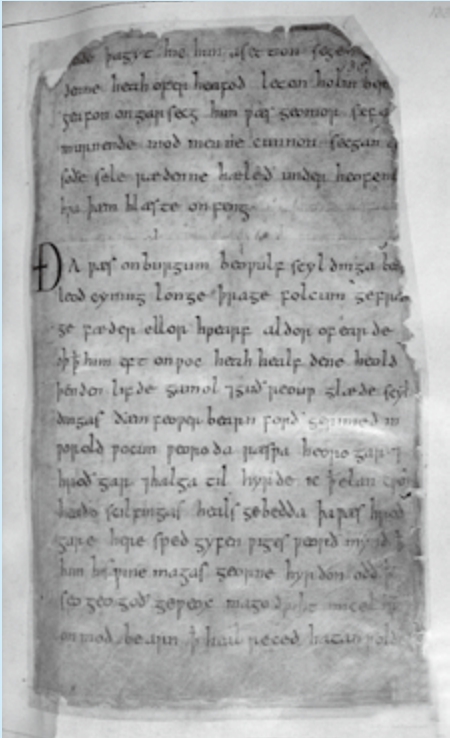 þa gyt hie him asetton segen
denne heah ofer heafod leton holm ber
geafon on garsecg him ƿæs geomor sefa
murnende mod men ne cunnon secgan
soðe sele rædenne hæleð under heofenū
hƿa þæm hlæste onfeng
ÐA ƿæs on burgum beoƿulf scyldinga
leod cyning longe þrage folcum gefræ
ge fæder ellor hƿearf aldor of earde
oþ ꝥ him eft onƿoc heah healf dene heold
þenden lifde gamol ⁊ guð reouƿ glæde scyl
dingas ðæm feoƿer bearn forð gerimed in
ƿorold ƿocun ƿeoroda ræsƿa heoro gar ⁊
hroð gar ⁊ halga til hyrde ic ꝥ elan
heaðo scilfingas heals gebedda þa ƿæs hroð
gare here sped gyfen ƿiges ƿeorð mynd ꝥ
him his ƿine magas georne hyrdon oðð ꝥ
seo geogoð geƿeox mago driht micel
on mod bearn ꝥ heal reced hatan ƿolde